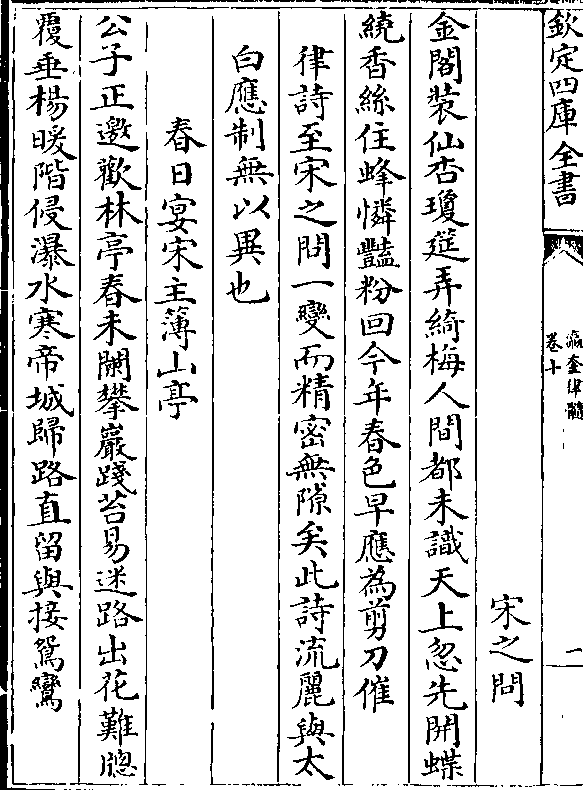 欽定四庫全書
瀛奎律髓
卷十
二
宋之問
金閣裝仙杏瓊筵弄綺梅人間都未識天上忽先開蝶
繞香絲住蜂憐豔粉回今年春色早應為剪刀催
律詩至宋之問一變而精密無隙矣此詩流麗與太
白應制無以異也
春日宴宋主薄山亭
公子正邀歡林亭春未闌攀巖踐苔易迷路出花難牕
覆垂楊暖階侵瀑水寒帝城歸路直留與接鴛鸞